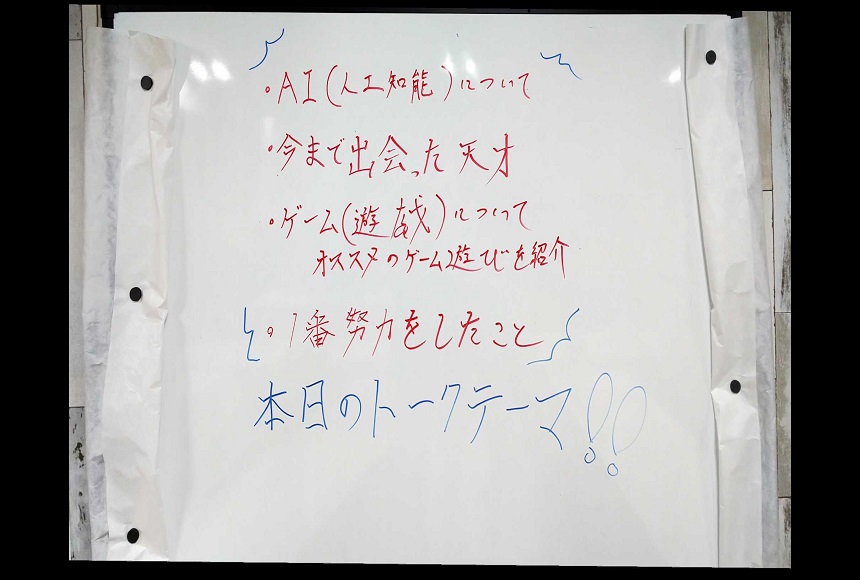 ・AI(人工知能)について
・今まで出会った天才
・ゲーム(遊戯)について
オススメのゲーム遊びを紹介
・1番努力をしたこと
本日のトークテーマ!!